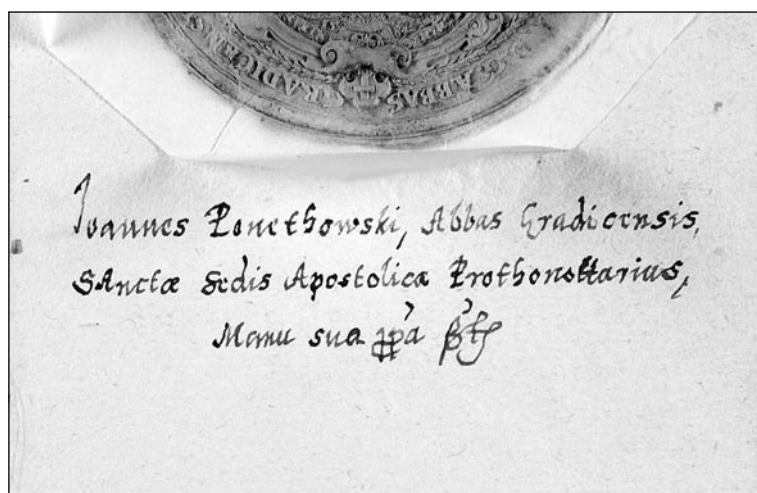 ABBAS RADICENS
Ioannes Ponethowski, Abbas Gradicensis,
SAnctæ Sedis Apostolicæ Prothonottarius,
Manu sua